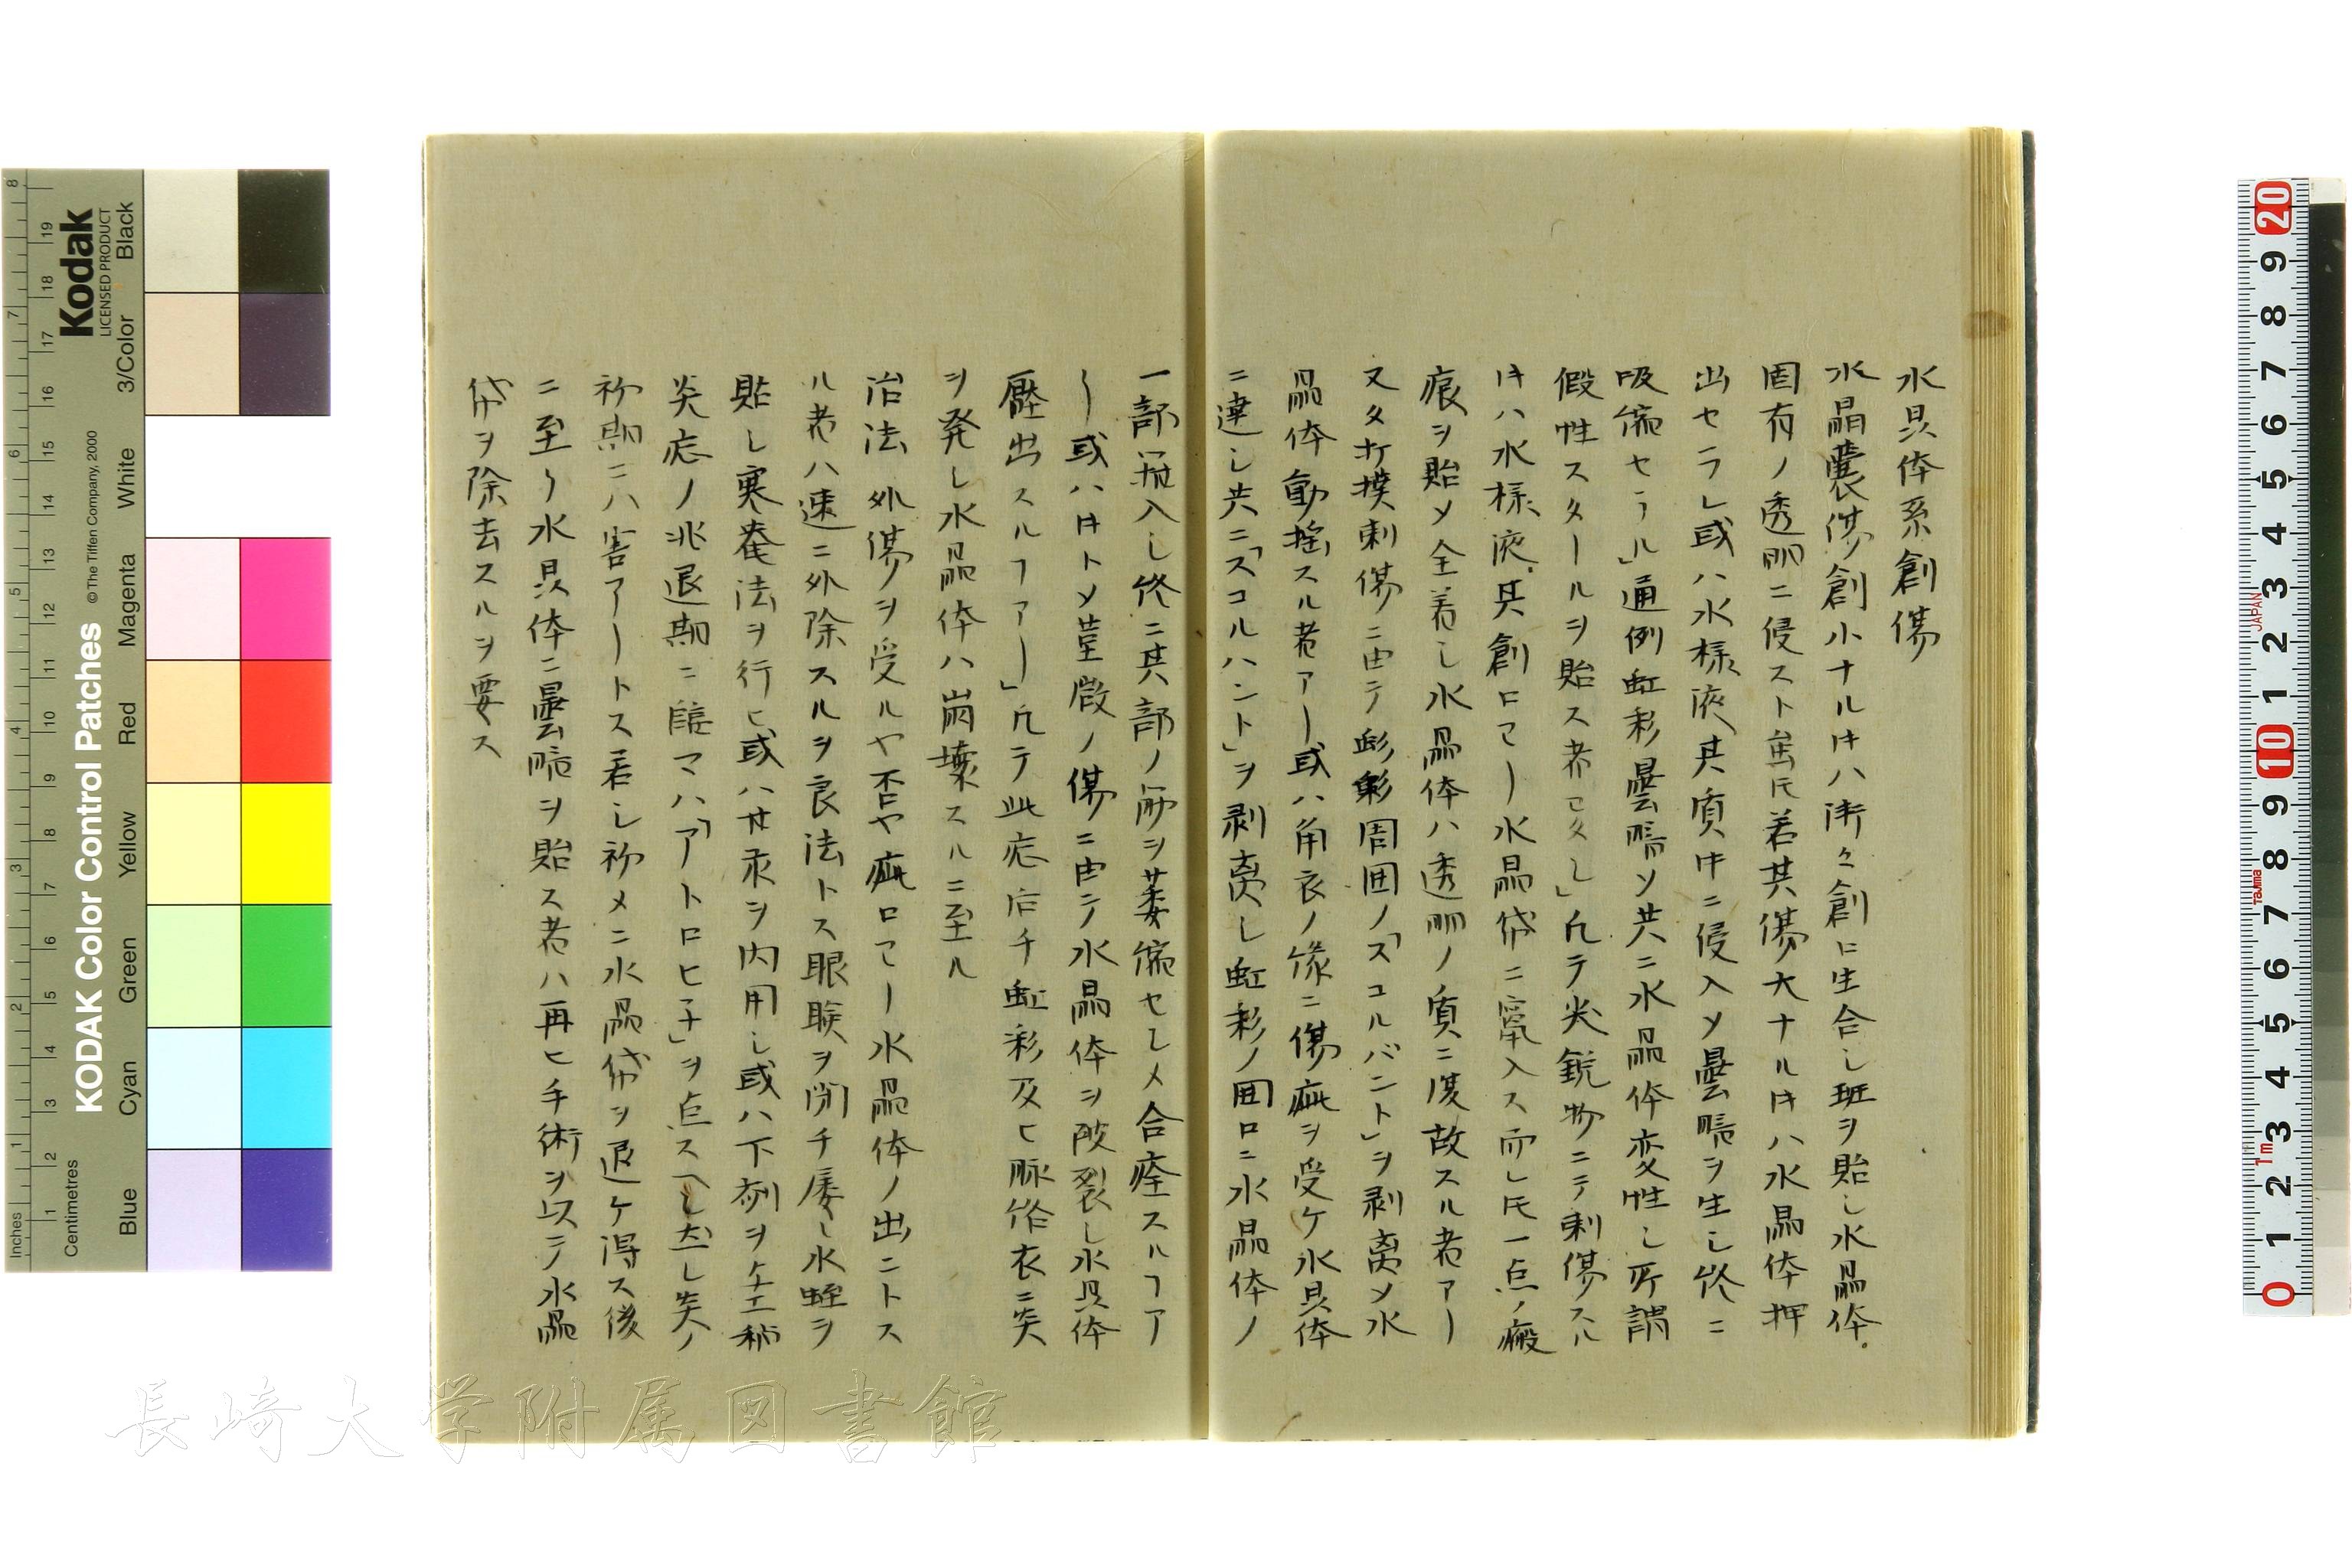 水晶体系創傷
水晶嚢傷創小ナルキハ漸々創口生合シ斑ヲ貽シ水晶体
固有ノ透明ニ侵スト雖𪜈若其傷大ナルキハ水晶体押
出セラレ或ハ水様液其質中ニ侵入〆曇暗ヲ生シ終ニ
吸縮セラル」通例虹彩曇暗ソ共ニ水晶体変性シ所謂
假性スタールヲ貽ス者已久シ」凡テ尖鋭物ニテ刺傷スル
キハ水様液其創口ヨリ水晶帒ニ竄入ス而シ𪜈一点ノ瘢
痕ヲ貽〆全着シ水晶体ハ透明ノ質ニ復故スル者アリ
又タ打撲刺傷ニ由テ虹彩周囲ノ「スコルバント」ヲ剥离〆水
晶体動揺スル者アリ或ハ角衣ノ縁ニ傷疵ヲ受ケ水晶体
ニ達シ共ニ「スコルハント」ヲ剥离シ虹彩ノ囲口ニ水晶体ノ
一部嵌入シ終ニ其部ノミヲ萎縮セシメ合痊スルヿア
リ或ハキトメ菫微ノ傷ニ由テ水晶体ヲ破裂シ水晶体
壓出スルヿアリ」凡テ此症后チ虹彩及ヒ脉絡衣ニ炎
ヲ発シ水晶体ハ崩壊スルニ至ル
治法 外傷ヲ受ルヤ否ヤ疵口ヨリ水晶体ノ出ニトス
ル者ハ速ニ外除スルヲ良法トス眼瞼ヲ閉チ屡シ水蛭ヲ
貼シ寒罨法ヲ行ヒ或ハ甘汞ヲ内用シ或ハ下剤ヲ
炎症ノ兆退期ニ臨マハ「アトロヒ子」ヲ点スヘシ
初期ニハ害アリトス若シ初メニ水晶帒ヲ退ケ得ス後
ニ至リ水晶体ニ曇暗ヲ貽ス者ハ再ヒ手術ヲ以テ水晶
帒ヲ除去スルヲ要ス
長崎大学附属図書館
Kodak
LICENSED PRODUCT
KODAK Color Control Patches
© The Tiffen Company, 2000
Inches
Centimetres
Blue
Cyan
Green
Yellow
Red
Magenta
White
3/Color
Black
JAPAN
Tajima
1m